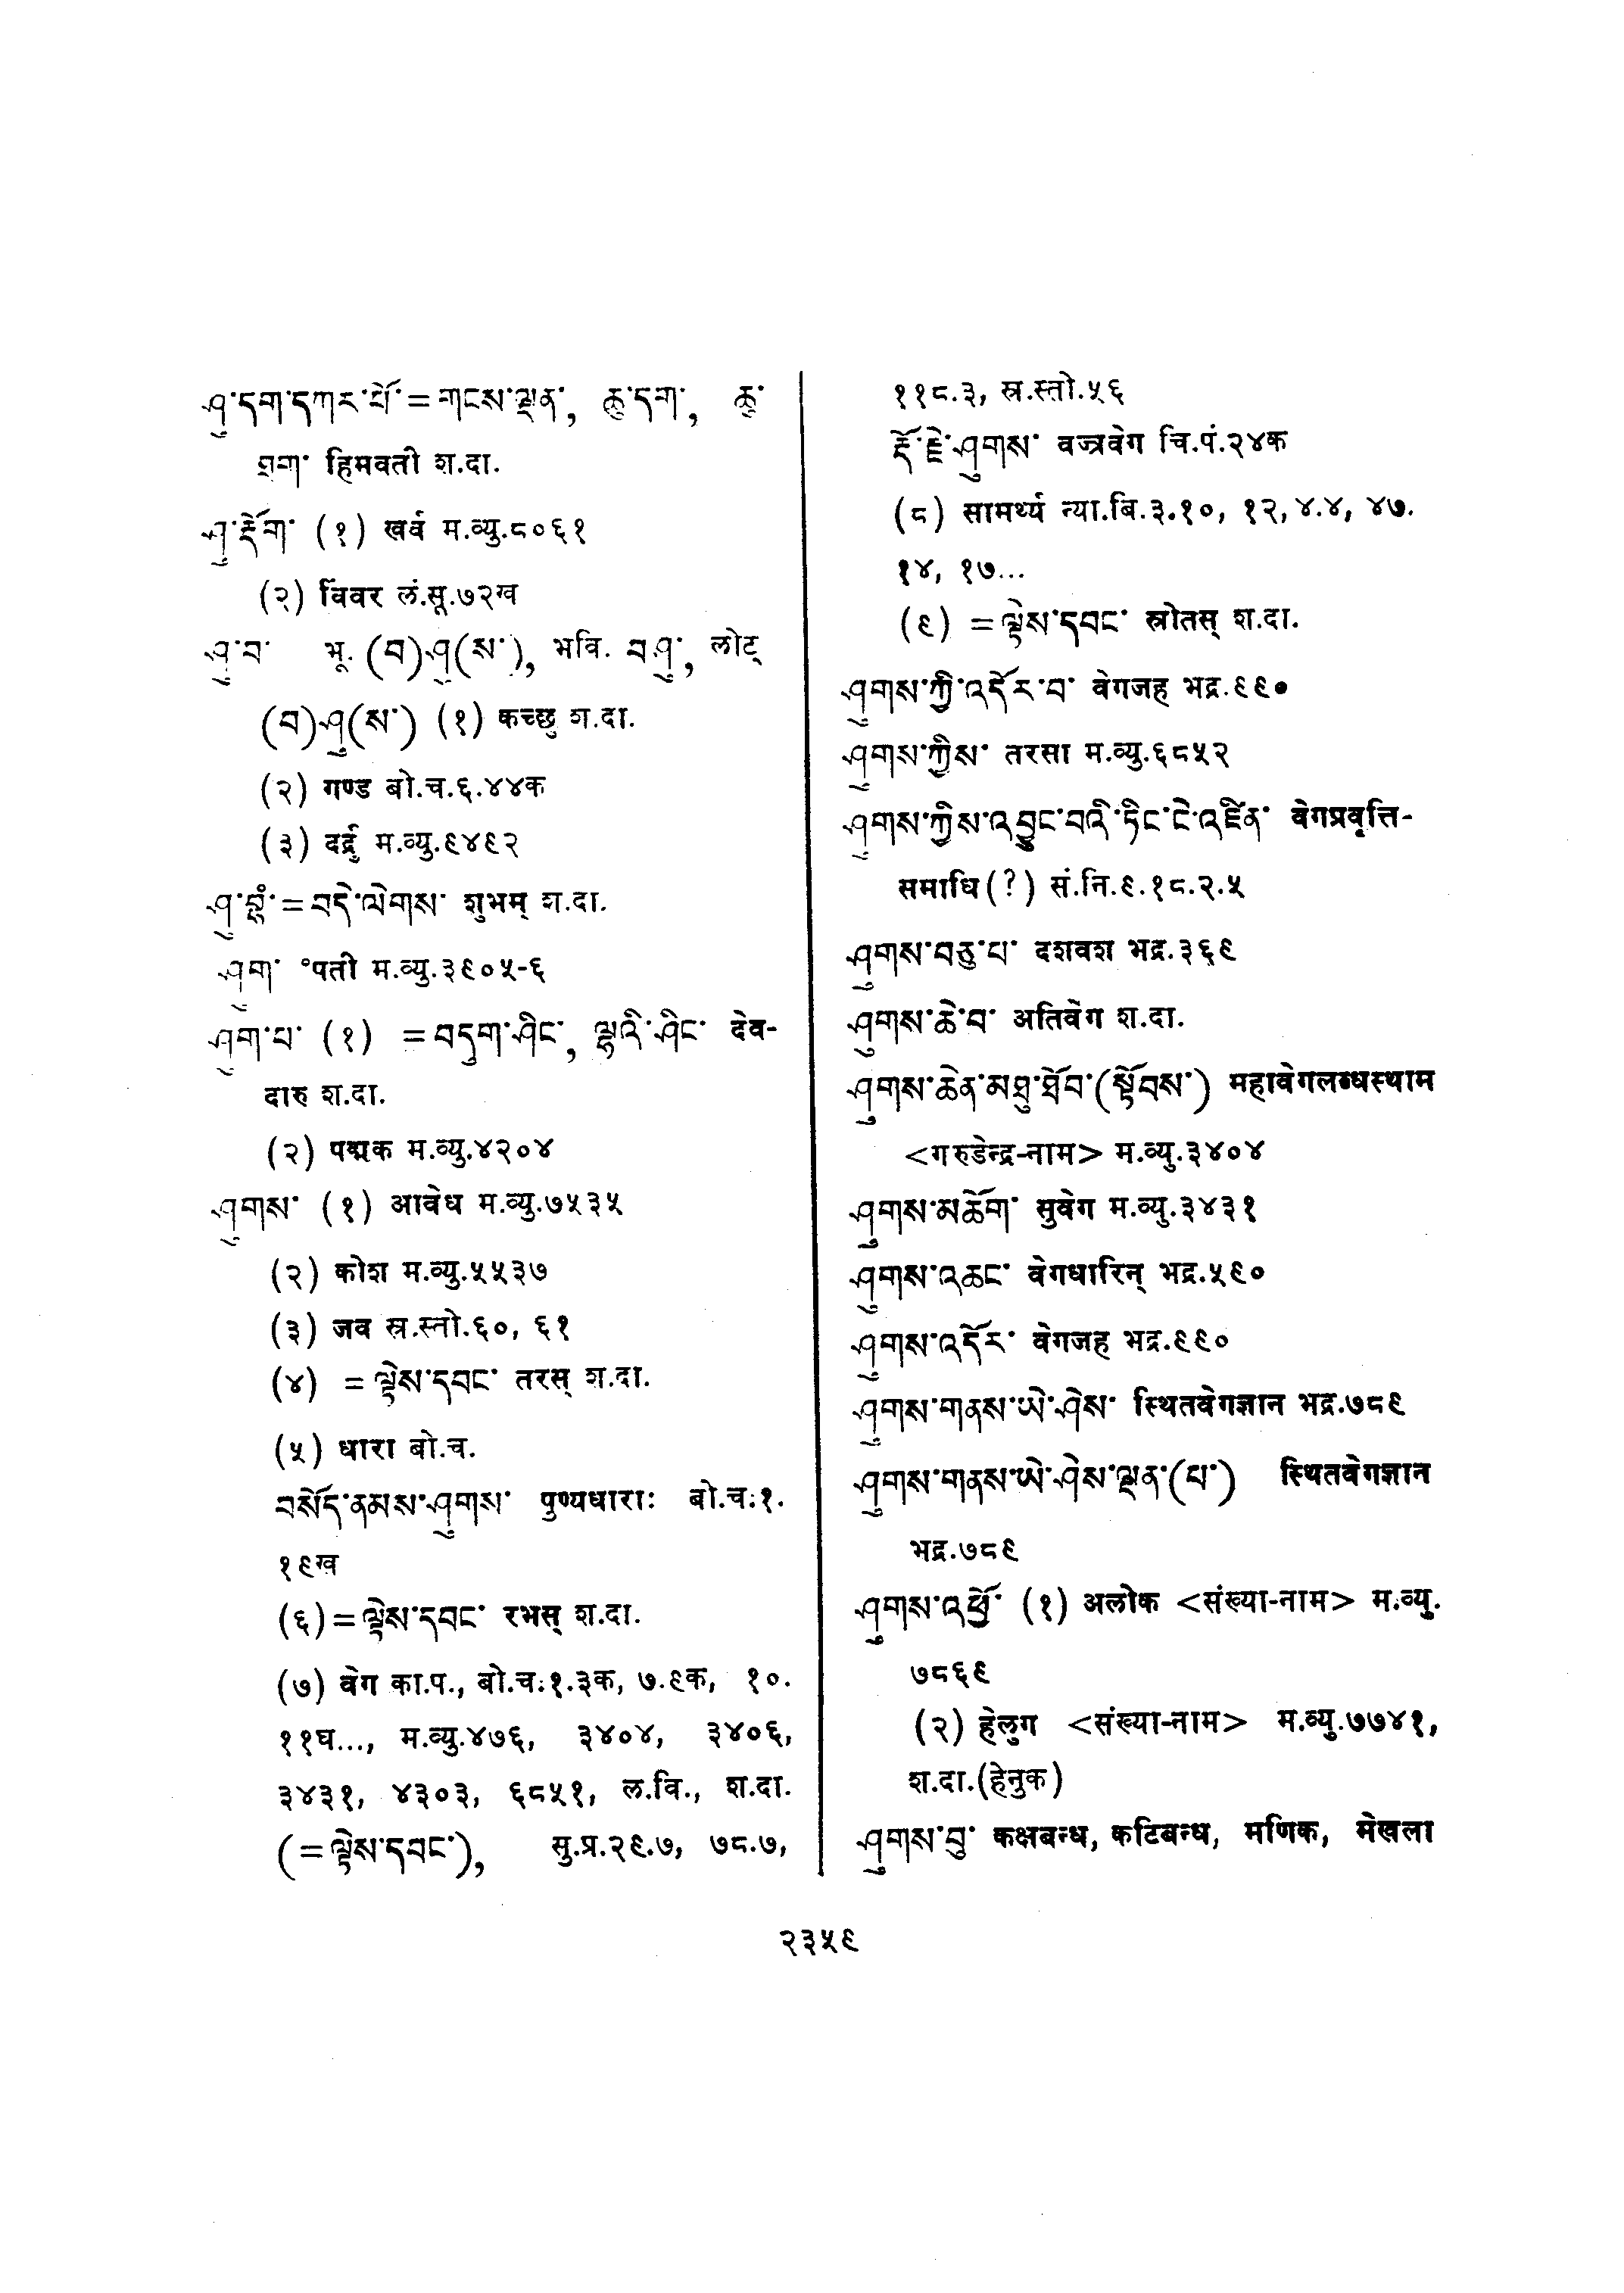 ཤུ་དག་དཀར་པོ་ = གངས་ལྡན་, ཆུ་དག་, ཆུ་
གྲག་ हिमवती श.दा.
ཤུ་རྡོག་ (१) खर्व म.व्यु.८०६१
(२) विवर लं.सू.७२ख
ཤུ་བ་ भू. (བ)ཤུ(ས་), भवि. བཤུ་, लोट्
(བ)ཤུ(ས་) (१) कच्छु श.दा.
(२) गण्ड बो.च.६.४४क
(३) दर्द्रु म.व्यु.९४९२
ཤུ་བྷཾ་ = བདེ་ལེགས་ शुभम् श.दा.
ཤུག་ °पती म.व्यु.३९०५-६
ཤུག་པ་ (१) = བདུག་ཤིང་, ལྷའི་ཤིང་ देव-
दारु श.दा.
(२) पद्मक म.व्यु.४२०४
ཤུགས་ (१) आवेध म.व्यु.७५३५
(२) कोश म.व्यु.५५३७
(३) जव स्र.स्तो.६०, ६१
(४) = ལྟེས་དབང་ तरस् श.दा.
(५) धारा बो.च.
བསོད་ནམས་ཤུགས་ पुण्यधाराः बो.चः१.
१९ख
(६) = ལྟེས་དབང་ रभस् श.दा.
(७) वेग का.प., बो.चः१.३क, ७.९क, १०.
११घ..., म.व्यु.४७६, ३४०४, ३४०६,
३४३१, ४३०३, ६८५१, ल.वि., श.दा.
(= ལྟེས་དབང་), सु.प्र.२९.७, ७८.७,
११८.३, स्र.स्तो.५६
རྡོ་རྗེ་ཤུགས་ वज्रवेग चि.पं.२४क
(८) सामर्थ्य न्या.बि.३.१०, १२, ४.४, ४७.
१४, १७...
(९) = ལྟེས་དབང་ स्रोतस् श.दा.
ཤུགས་ཀྱི་འདོར་བ་ वेगजह भद्र.९९०
ཤུགས་ཀྱིས་ तरसा म.व्यु.६८५२
ཤུགས་ཀྱིས་འབྱུང་བའི་ཏིང་ངེ་འཛིན་ वेगप्रवृत्ति-
समाधि(?) सं.नि.९.१८.२.५
ཤུགས་བཅུ་པ་ दशवश भद्र.३६९
ཤུགས་ཆེ་བ་ अतिवेग श.दा.
ཤུགས་ཆེན་མཐུ་ཐོབ་(སྟོབས་) महावेगलब्धस्थाम
<गरुडेन्द्र-नाम> म.व्यु.३४०४
ཤུགས་མཆོག་ सुवेग म.व्यु.३४३१
ཤུགས་འཆང་ वेगधारिन् भद्र.५९०
ཤུགས་འདོར་ वेगजह भद्र.९९०
ཤུགས་གནས་ཡེ་ཤེས་ स्थितवेगज्ञान भद्र.७८९
ཤུགས་གནས་ཡེ་ཤེས་ལྡན་(པ་) स्थितवेगज्ञान
भद्र.७८९
ཤུགས་འཕྱོ་ (१) अलोक <संख्या-नाम> म.व्यु.
७८६९
(२) हेलुग <संख्या-नाम> म.व्यु.७७४१,
श.दा.(हेनुक)
ཤུགས་བུ་ कक्षबन्ध, कटिबन्ध, मणिक, मेखला
२३५९